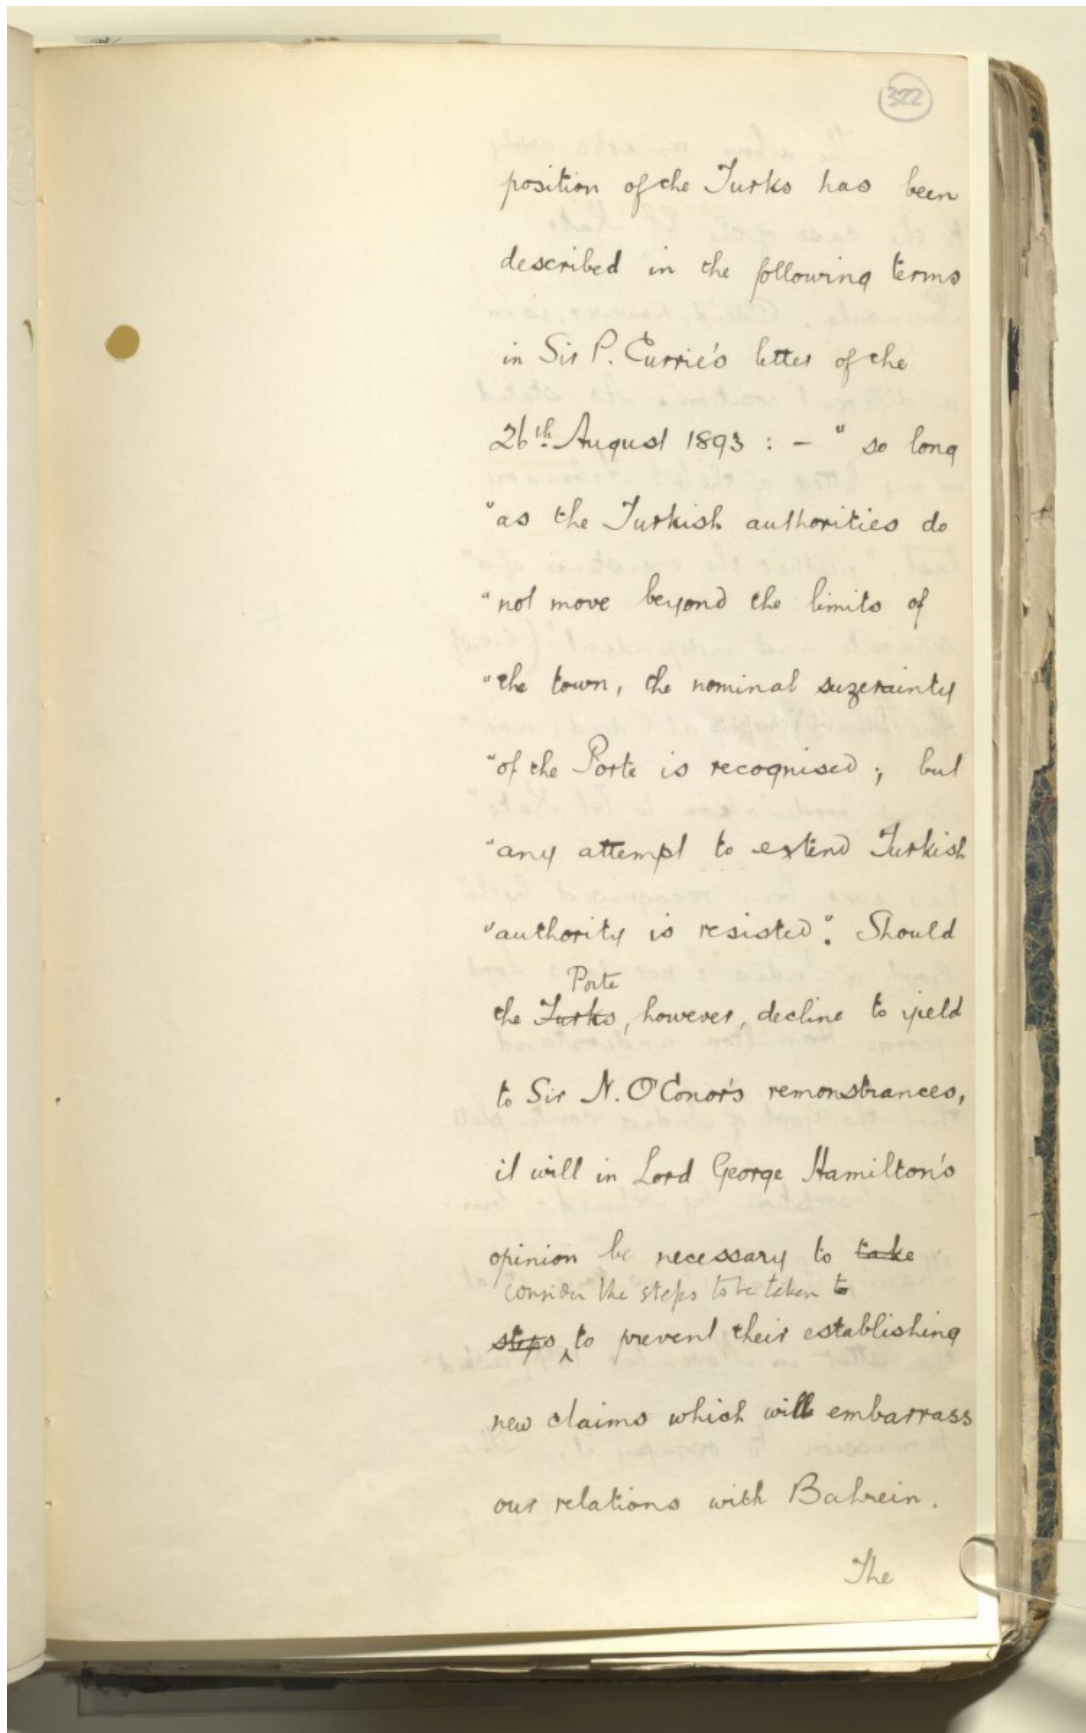 322
position of the Turks has been
described in the following terms
in Sir P. Currie's letter of the
26th August 1893 : – " so long
"as the Turkish authorities do
"not move beyond the limits of
"the town, the nominal suzerainty
"of the Porte is recognised ; but
"any attempt to extend Turkish
"authority is resisted". Should
Porte
the Turks, however, decline to yield
to Sir N. O'Conor's remonstrances,
it will in Lord George Hamilton's
opinion be necessary to take
consider the steps to be taken to
steps to prevent their establishing
new claims which will embarrass
our relations with Bahrein.
The